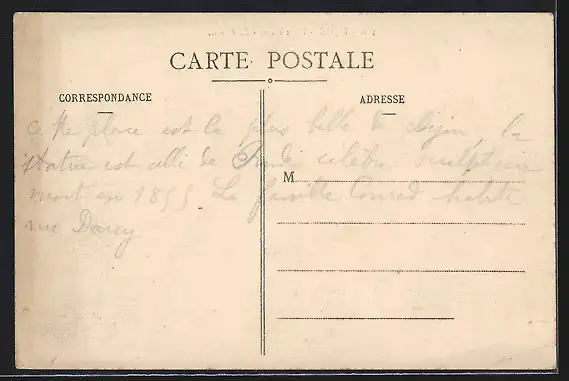 CARTE POSTALE
CORRESPONDANCE
ADRESSE
cette place est la plus belle de Dijon, la
statue est celle de Rude célèbre sculpteur
M
mort en 1855 La famille Conrad habite
rue Darcy